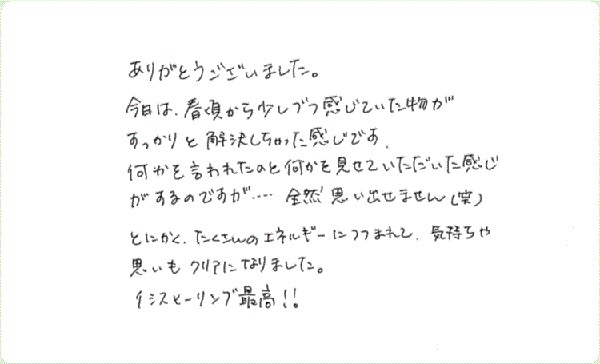 ありがとうございました。
今日は、春頃から少しづつ感じていた物が
すっかりと解決しちゃった感じです。
何かを言われたのと何かを見せていただいた感じ
がするのですが…. 全然思い出せません(笑)
とにかく、たくさんのエネルギーにつつまれて、気持ちや
思いもクリアになりました。
イシスヒーリング最高!!